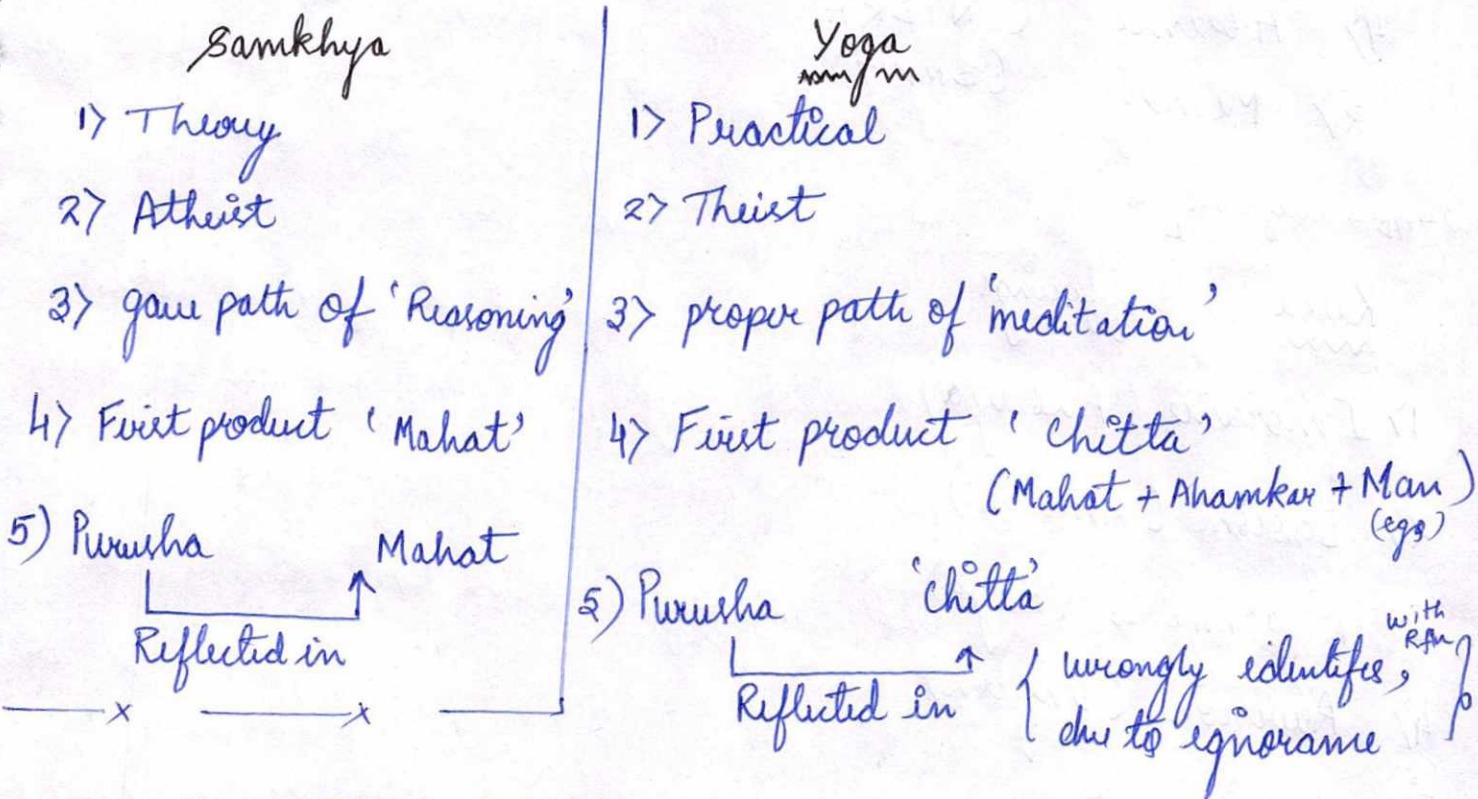 Samkhya
1) Theory
2) Atheist
3) gave path of 'Reasoning'
4) First product 'Mahat'
5) Purusha Mahat
Reflected in
x x
Yoga
1) Practical
2) Theist
3) proper path of 'meditation'
4) First product 'Chitta'
(Mahat + Ahamkar + Man)
(ego)
5) Purusha 'Chitta'
Reflected in
{ wrongly identifes, with Rfn
due to ignorance }